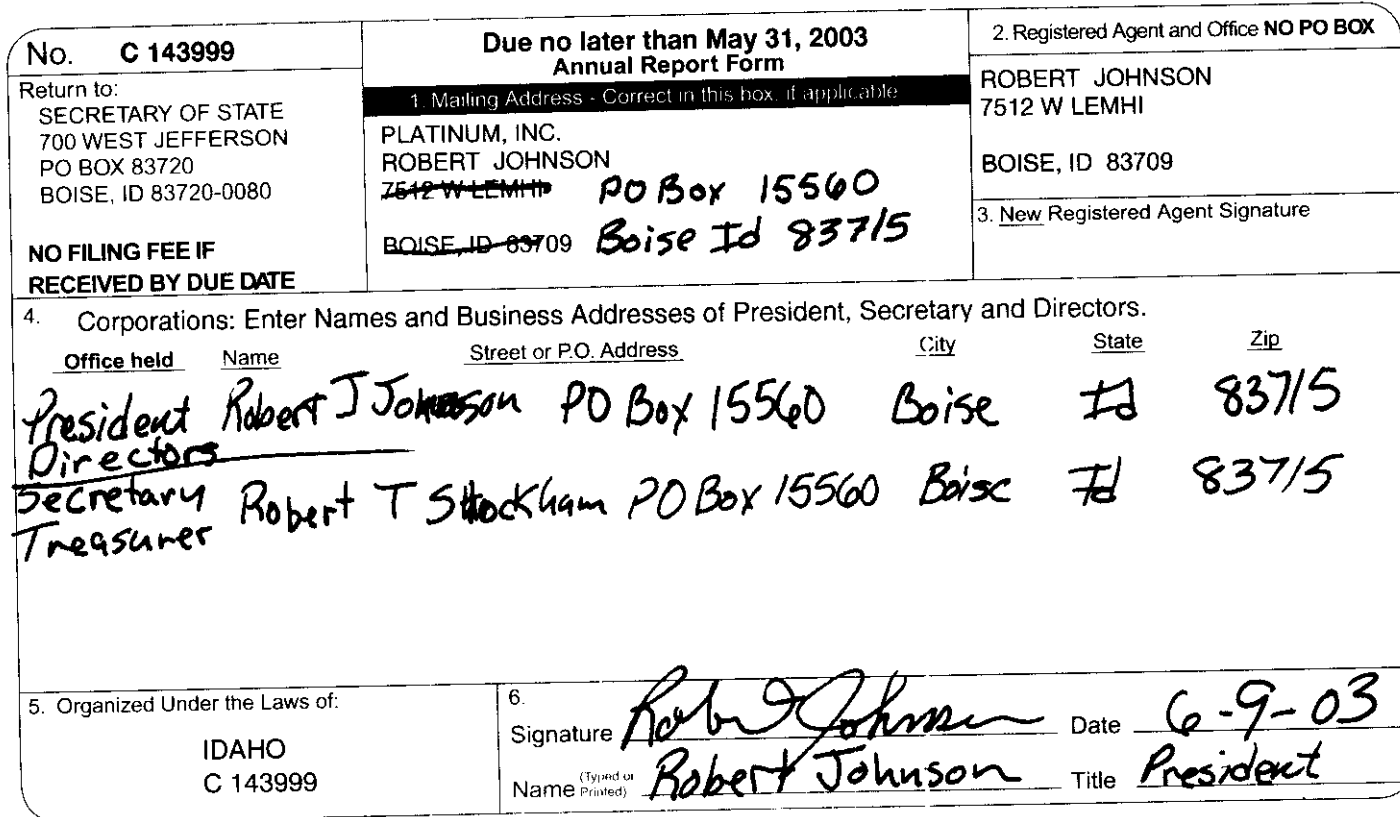 No. C 143999
Return to:
SECRETARY OF STATE
700 WEST JEFFERSON
PO BOX 83720
BOISE, ID 83720-0080
NO FILING FEE IF
RECEIVED BY DUE DATE
Due no later than May 31, 2003
Annual Report Form
1. Mailing Address - Correct in this box, if applicable
PLATINUM, INC.
ROBERT JOHNSON
7512 W LEMHI PO Box 15560
BOISE, ID 83709 Boise Id 83715
2. Registered Agent and Office NO PO BOX
ROBERT JOHNSON
7512 W LEMHI
BOISE, ID 83709
3. New Registered Agent Signature
4. Corporations: Enter Names and Business Addresses of President, Secretary and Directors.
Office held Name Street or P.O. Address City State Zip
President Robert J Johnson PO Box 15560 Boise Id 83715
Directors
Secretary Robert T Stockham PO Box 15560 Boise Id 83715
Treasurer
5. Organized Under the Laws of:
IDAHO
C 143999
6.
Signature Robert Johnson Date 6-9-03
Name (Typed or Printed) Robert Johnson Title President